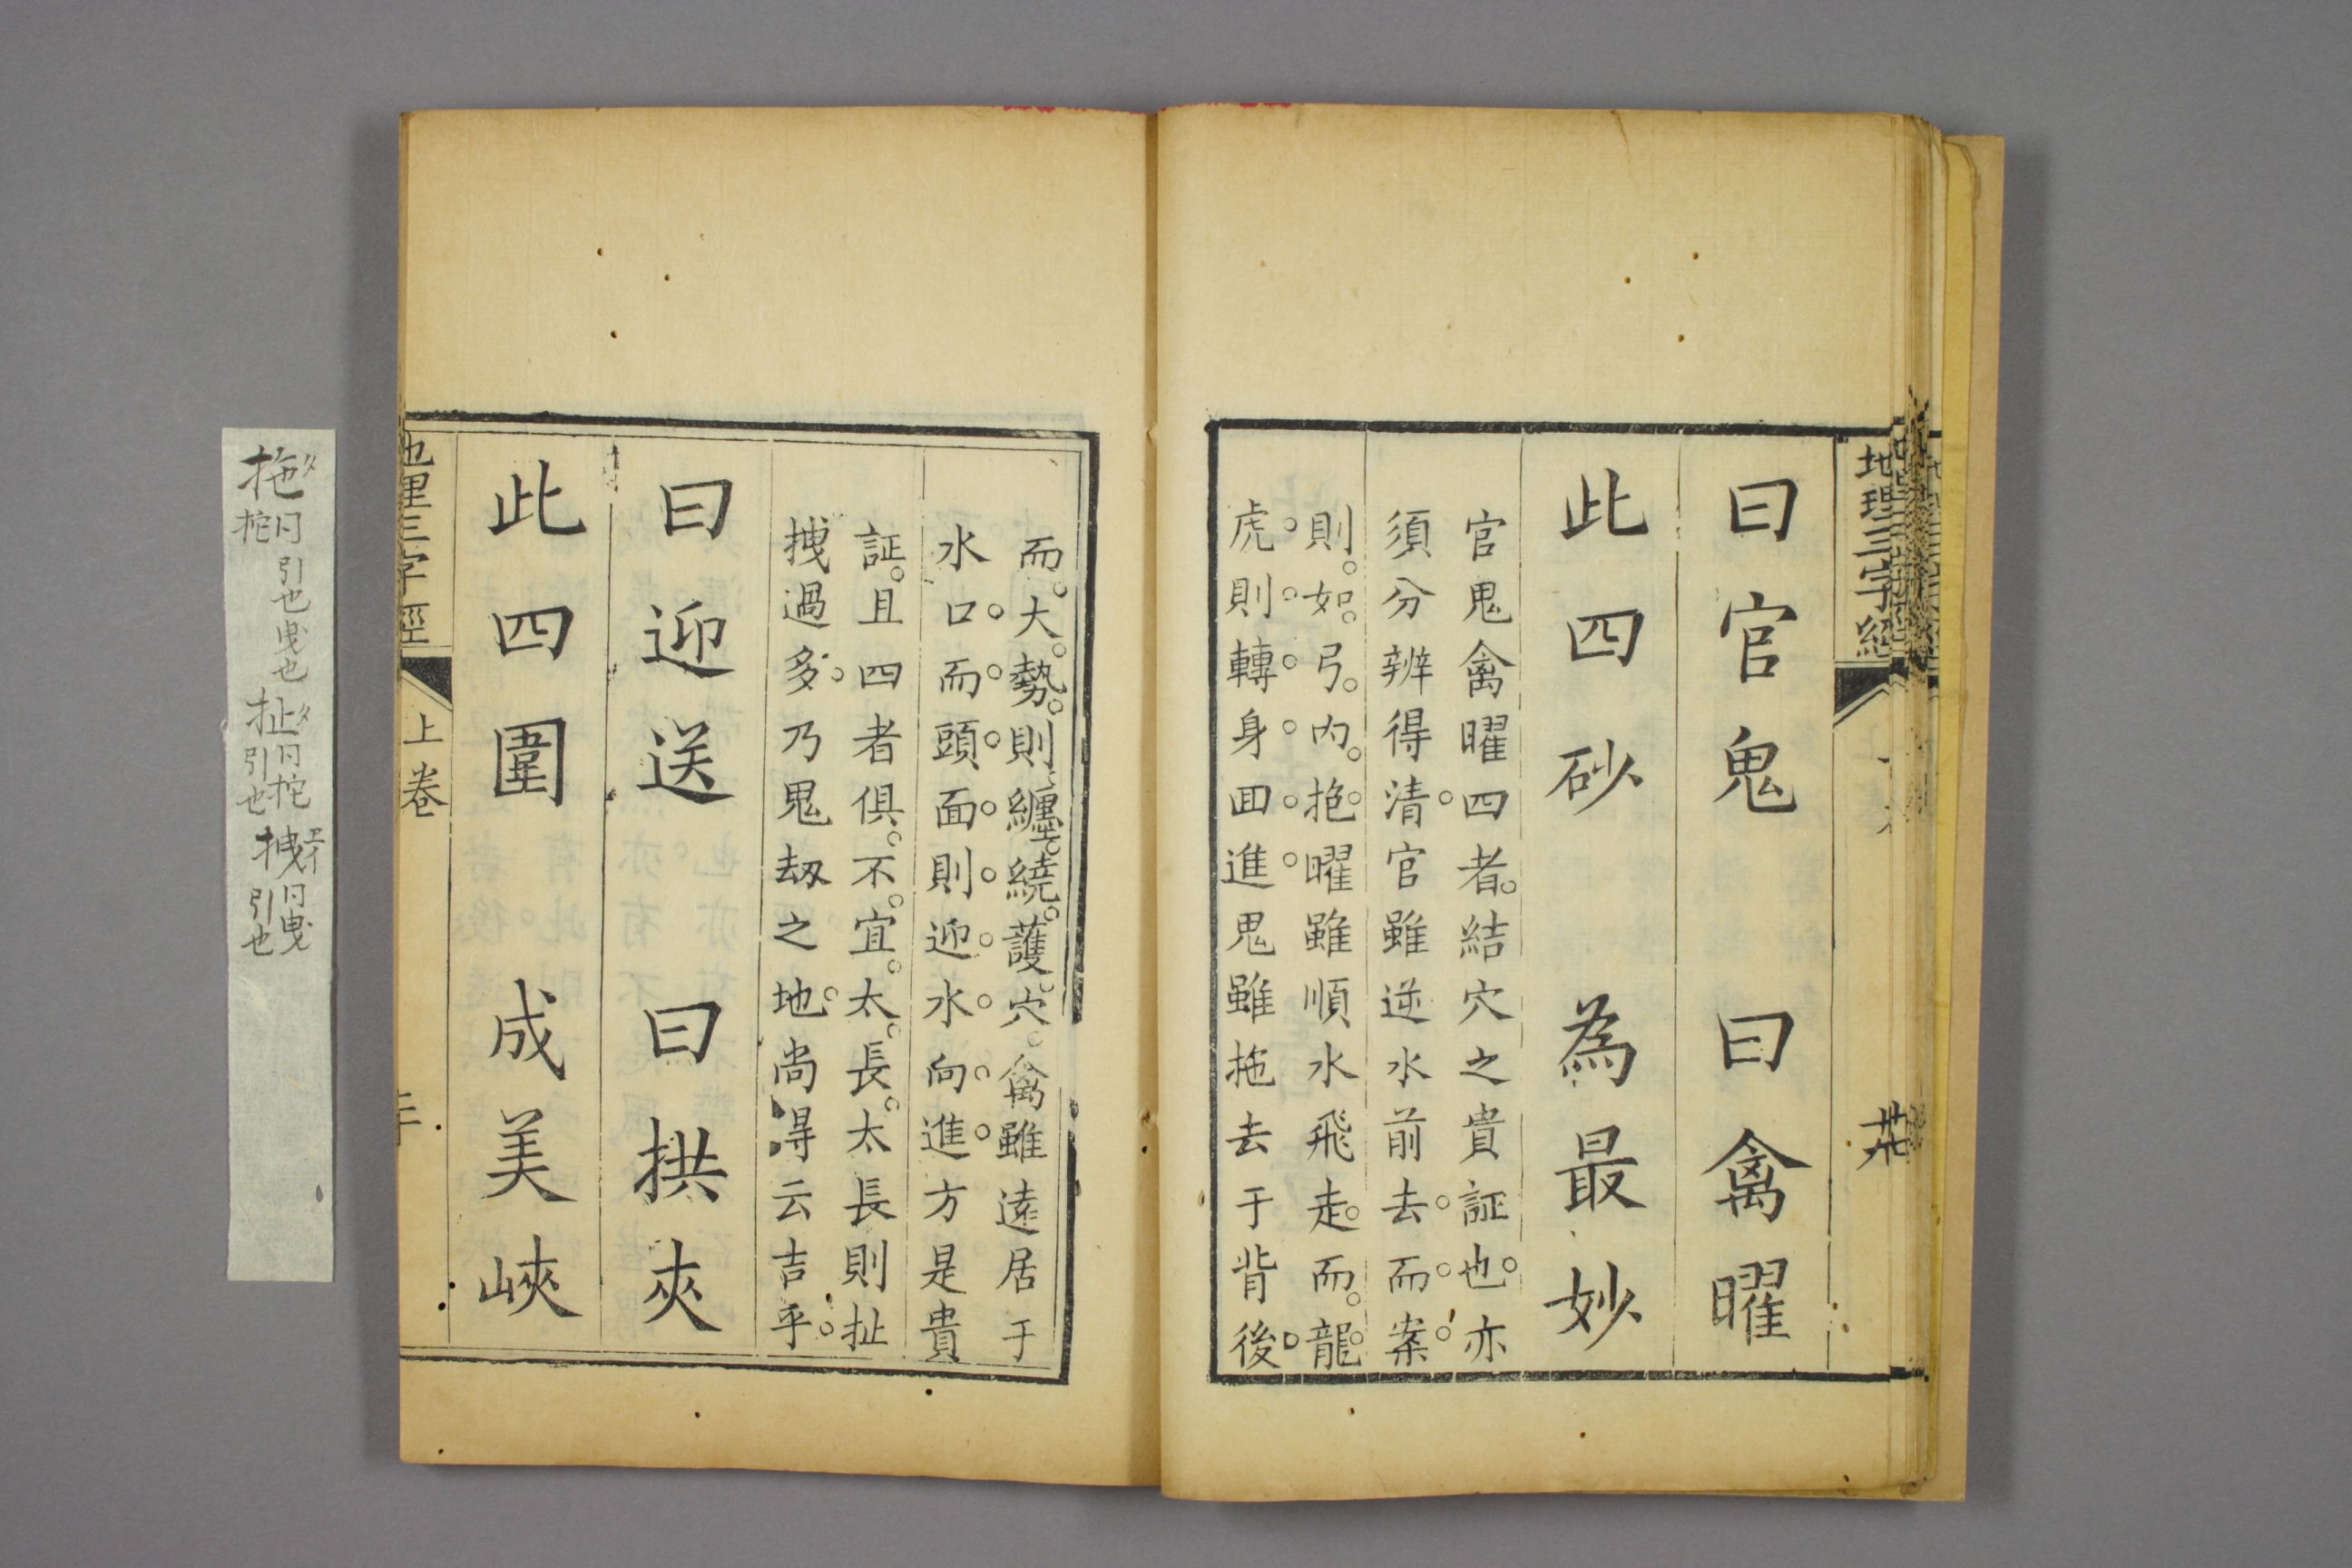 地理三字經
曰官鬼　曰禽曜
此四砂　為最妙
官鬼禽曜四者。結穴之貴証也。亦
須分辨得清。官雖逆水前去。而。案。
則。如。弓。內。抱。曜雖順水飛走。而。龍。
虎。則。轉。身。回。進。鬼雖拖去于背後。
而。大。勢。則。纏。繞。護。穴。禽雖遠居于
水口。而。頭。面。則。迎。水。向。進。方是貴
証。且四者俱。不。宜。太。長。太長則扯
拽過多。乃鬼刼之地。尚得云吉乎。
曰迎送　曰拱夾
此四圍　成美峽
地理三字經
上卷
拖　曰拕　引也曳也
扯　曰拕　引也
拽　曰曳　引也